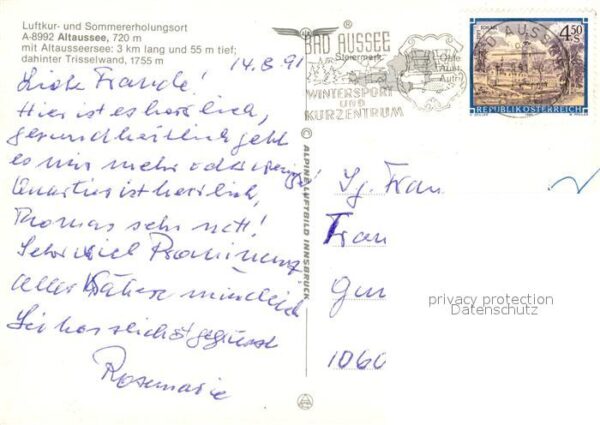 Luftkur- und Sommererholungsort
A-8992 Altaussee, 720 m
mit Altausseersee: 3 km lang und 55 m tief;
dahinter Trisselwand, 1755 m
14.8.91
Hier ist es herrlich,
gesundheitlich geht
es mir mehr oder weniger!
Quartier ist herrlich,
Thomas sehr nett!
Sehr viel Prominenz
Alles Nähere mündlich
Sei herzlichst gegrüsst
Rosemarie
BAD AUSSEE
Steiermark
WINTERSPORT
UND
KURZENTRUM
BAD AUSSEE
4.50
S
REPUBLIK ÖSTERREICH
© ALPINE LUFTBILD INNSBRUCK
Frau
1060
privacy protection
Datenschutz